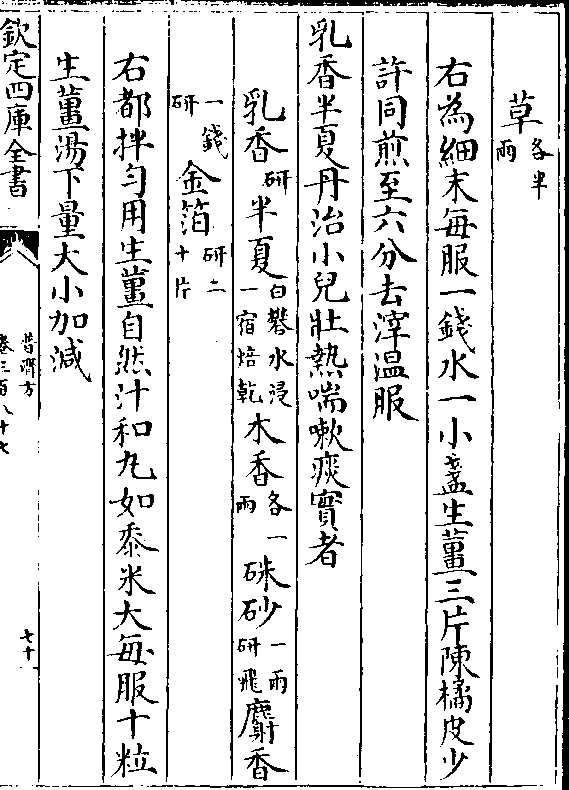 草各半兩
右為細末每服一錢水一小盞生薑三片陳橘皮少
許同煎至六分去滓温服
乳香半夏丹治小兒壯熱喘嗽痰實者
乳香研半夏白礬水浸一宿焙乾木香各一兩硃砂一兩研飛麝香
一錢研金箔研二十片
右都拌勻用生薑自然汁和丸如黍米大每服十粒
生薑湯下量大小加減
欽定四庫全書
普濟方
卷三百八十七
七十